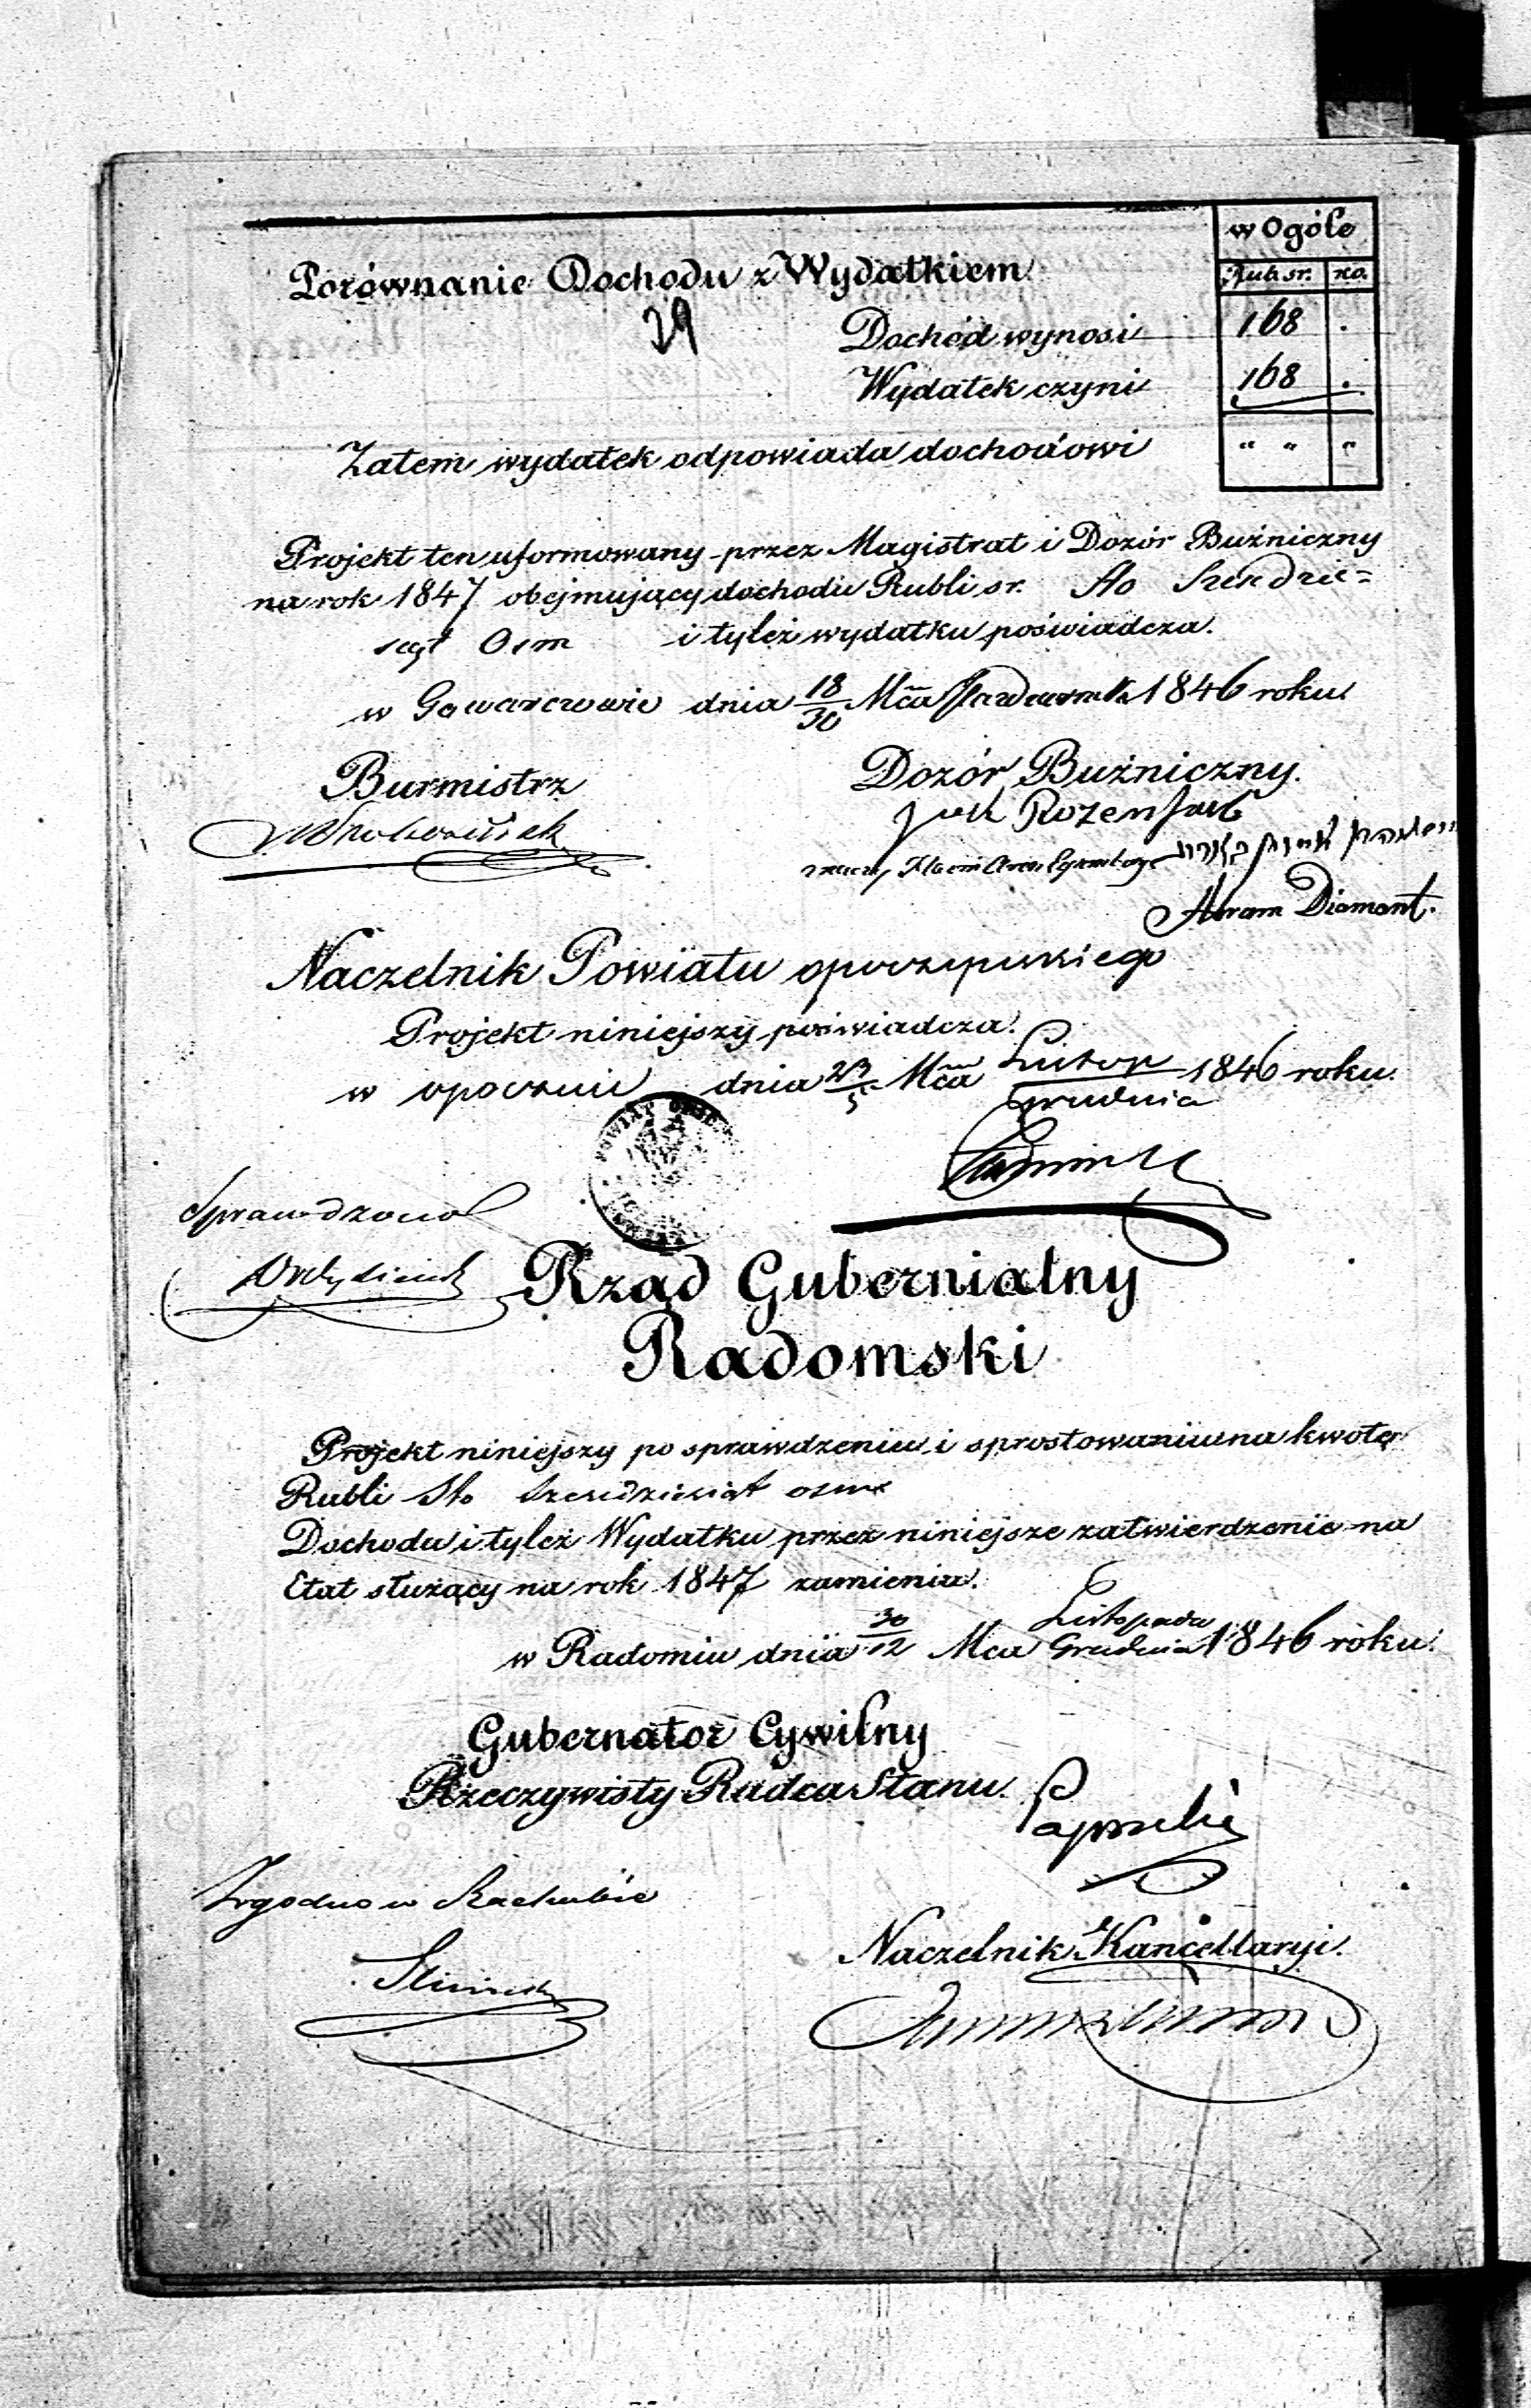 w Ogóle
Porównanie Dochodu z Wydatkiem
Rub sr. ko.
29
Dochód wynosi 168 .
Wydatek czyni 168 .
Zatem wydatek odpowiada dochodowi " " "
Projekt ten uformowany przez Magistrat i Dozór Buźniczny
na rok 1847 obejmujący dochodu Rubli sr. Sto Szeŝdzie=
sąt Osm i tyleż wydatku poświadcza.
w Gowarczowie dnia 18/30 Mca 1846 roku
Burmistrz
Dozór Buźniczny.
Rozenfarb
Abram Diamant.
Naczelnik Powiatu opoczyńskiego
Projekt niniejszy poświadcza.
w opocznie dnia 23/5 Mca Listop/Grudnia 1846 roku.
POWIAT
Sprawdzono
Rząd Gubernialny
Radomski
Projekt niniejszy po sprawdzeniu i sprostowaniu na kwotę
Rubli Sto Szesdziesiąt osm
Dochodu i tyleż Wydatku przez niniejsze zatwierdzenie na
Etat służący na rok 1847 zamienia.
w Radomiu dnia 30/12 Mca Listopada/Grudnia 1846 roku.
Gubernator Cywilny
Rzeczywisty Radca Stanu.
Zgodno w Rachubie
Naczelnik Kancellaryi.